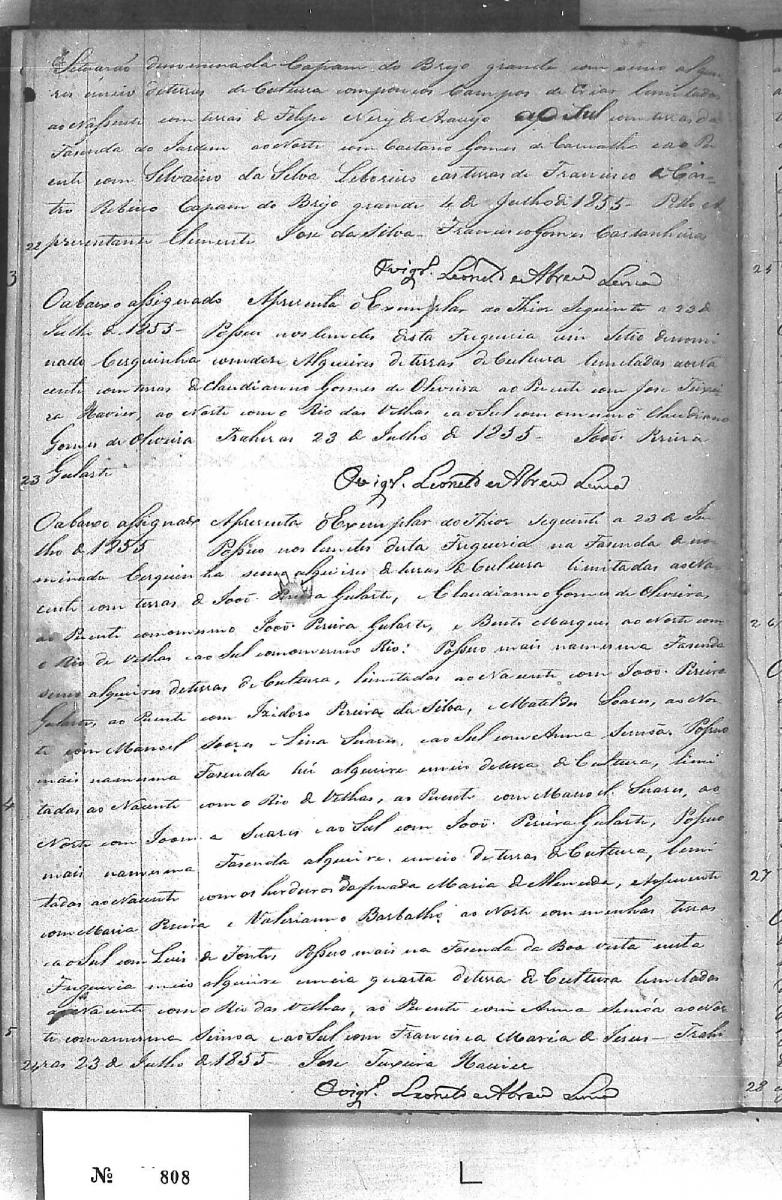 denominada Capam do Brejo grande com seis alquei
res e meio de terras de Cultura com poucos Campos de Criar limitadas
ao Nassente com terras de Felipe Nery de Araujo ao Sul com terras da
Fazenda do Jardim ao Norte com Caetano Gomes de Carvalho e ao Po
ente com Silvanno da Silva e as terras de Francisco de Cas
tro Ribeiro Capam do Brejo grande de Julho de 1855 Pello A
22 presentante Clemente Jose da Silva Francisco Gomes Castanheira
3 O vigr.º Leonel de Abreu Lima
O abaxo assignado Apresenta o Exemplar do Thior Seguinte a 23 de
Julho de 1855 Possuo nos lemites desta Freguesia um Sitio denomi
nado Cerquinha com dez Alqueires de terras de Cultura limitadas ao Na
cente com terras de Claudianno Gomes de Oliveira ao Puente com Jose Teixei
ra Xavier, ao Norte com o Rio das Velhas e ao Sul com o mesmo Claudiano
Gomes de Oliveira Trahiras 23 de Julho de 1855 João Pereira
23 Gularte
O vigr.º Leonel de Abreu Lima
O abaxo assignado Apresenta o Exemplar do Thior Seguinte a 23 de Ju
lho de 1855 Possuo nos lemites desta Freguesia na Fazenda de no
minada Cerquinha seis alqueires de terras de Cultura limitadas ao Na
cente com terras de João Pereira Gularte, e Claudianno Gomes de Oliveira,
ao Puente com o mesmo João Pereira Gularte, e Bento Marques ao Norte com
o Rio de Velhas e ao Sul com o mesmo Rio: Possuo mais na mesma Fazenda
alqueires de terras de Cultura, limitadas ao Nacente com João Pereira
Gularte, ao Puente com Izidoro Pereira da Silva, e Matildes Soares, ao Nor
te com Manoel Soares e Lina Suares, e ao Sul com Anna Possuo
mais na mesma Fazenda hú alqueire e meio de terra de Cultura, limi
4 tadas ao Nacente com o Rio de Velhas, ao Puente com Manoel Suares, ao
Norte com Joanna Suares e ao Sul com João Pereira Gularte, Possuo
mais na mesma Fazenda alqueire e meio de terras de Cultura, limi
tadas ao Nacente com os herdeiros da finada Maria de Almeida, ao puente
com Maria Pereira e Valerianno Barbalho ao Norte com minhas terras
e ao Sul com Luis de Fontes Possuo mais na Fazenda da Boa vista nesta
Freguesia meio alqueire e meia quarta de terra de Cultura limitadas
ao Nacente com o Rio das Velhas, ao Puente com Anna ao Nor
5 te com a mesma e ao Sul com Francisca Maria de Jesus Trahi
24 ras 23 de Julho de 1855 Jose Teixeira Xavier
O vigr.º Leonel de Abreu Lima
25
26
27
28
Nº 808